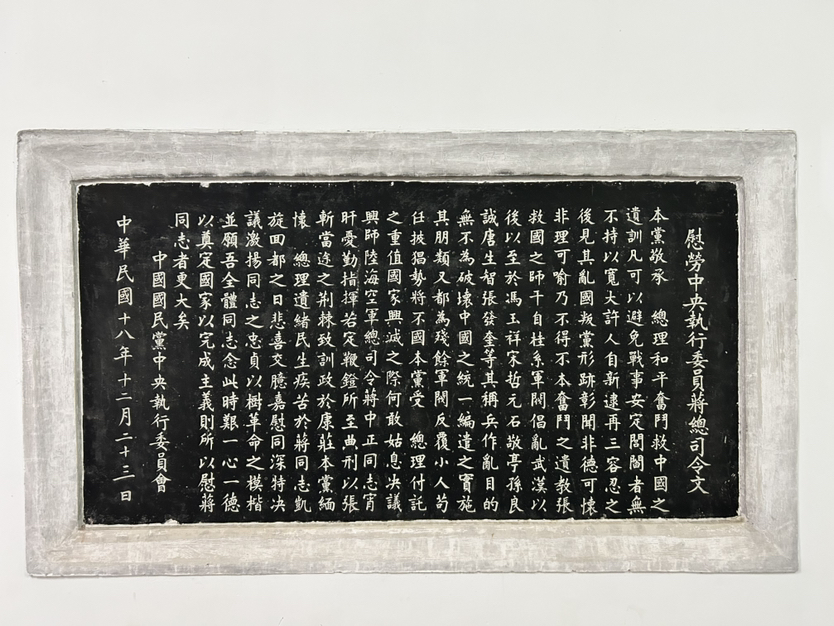 慰勞中央執行委員蔣總司令文
本黨敬承　總理和平奮鬥救中國之
遺訓凡可以避免戰事安定閭閻者無
不持以寬大許人自新逮再三容忍之
後見其亂國叛黨形跡彰聞非德可懐
非理可喻乃不得不本奮鬥之遺教張
救國之師于自桂系軍閥倡亂武漢以
後以至於馮玉祥宋哲元石敬亭孫良
誠唐生智張發奎等其稱兵作亂目的
無不為破壞中國之統一編遣之實施
其朋類又都為殘餘軍閥反覆小人苟
任披猖勢將不國本黨受　總理付託
之重值國家興滅之際何敢姑息決議
興師陸海空軍總司令蔣中正同志宵
旰憂勤指揮若定鞭鐙所至典刑以張
斬當途之荆棘致訓政於康莊本黨緬
懐　總理遺緒民生疾苦於蔣同志凱
旋回都之日悲喜交臆嘉慰同深特決
議激揚同志之忠貞以樹革命之模楷
並願吾全體同志念此時艱一心一德
以奠定國家以完成主義則所以慰蔣
同志者更大矣
中國國民黨中央執行委員會
中華民國十八年十二月二十三日